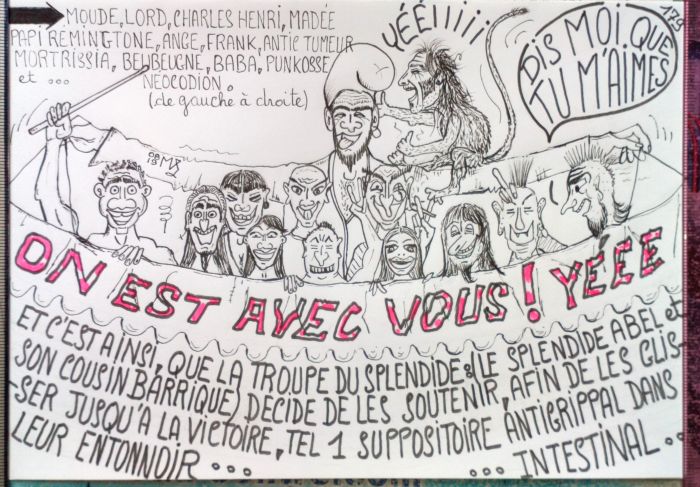 MOUDE, LORD, CHARLES HENRI, MADÉE
PAPI REMINGTONE, ANGE, FRANK, ANTIC TUMEUR
MORTRISSIA, BEUBEUGNE, BABA, PUNKOSSE
et ... NEOCODION.
(de gauche à droite)
YÉÉIIIIII
179
DIS MOI QUE
TU M'AIMES
ON EST AVEC VOUS! YÉÉE
ET C'EST AINSI, QUE LA TROUPE DU SPLENDIDE: (LE SPLENDIDE ABEL et
SON COUSIN BARRIQUE) DECIDE DE LES SOUTENIR, AFIN DE LES GLIS-
SER JUSQU'A LA VICTOIRE, TEL 1 SUPPOSITOIRE ANTIGRIPPAL DANS
LEUR ENTONNOIR ... ... INTESTINAL ..